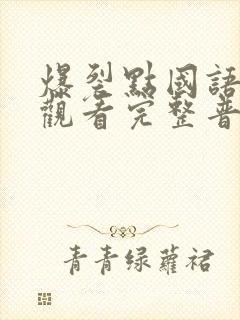 爆裂點國語
觀看完整普
青青绿蘿裙